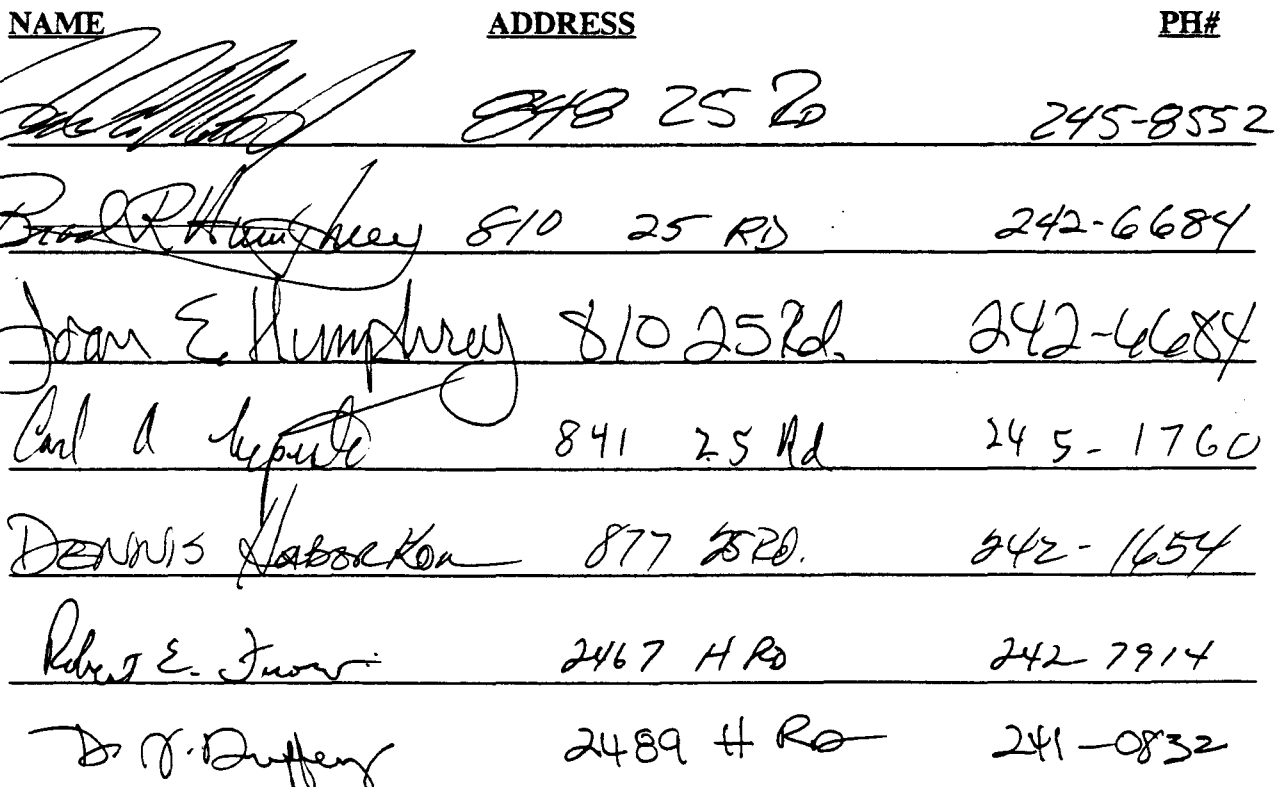 NAME ADDRESS PH#
848 25 RD 245-8552
Brad R Humphrey 810 25 RD 242-6684
Joan E Humphrey 810 25 Rd. 242-6684
Carl A 841 25 Rd 245-1760
DENNIS 877 25 RD. 242-1654
Robert E. 2467 H RD 242-7914
D. J. Duffey 2489 H RD 241-0832